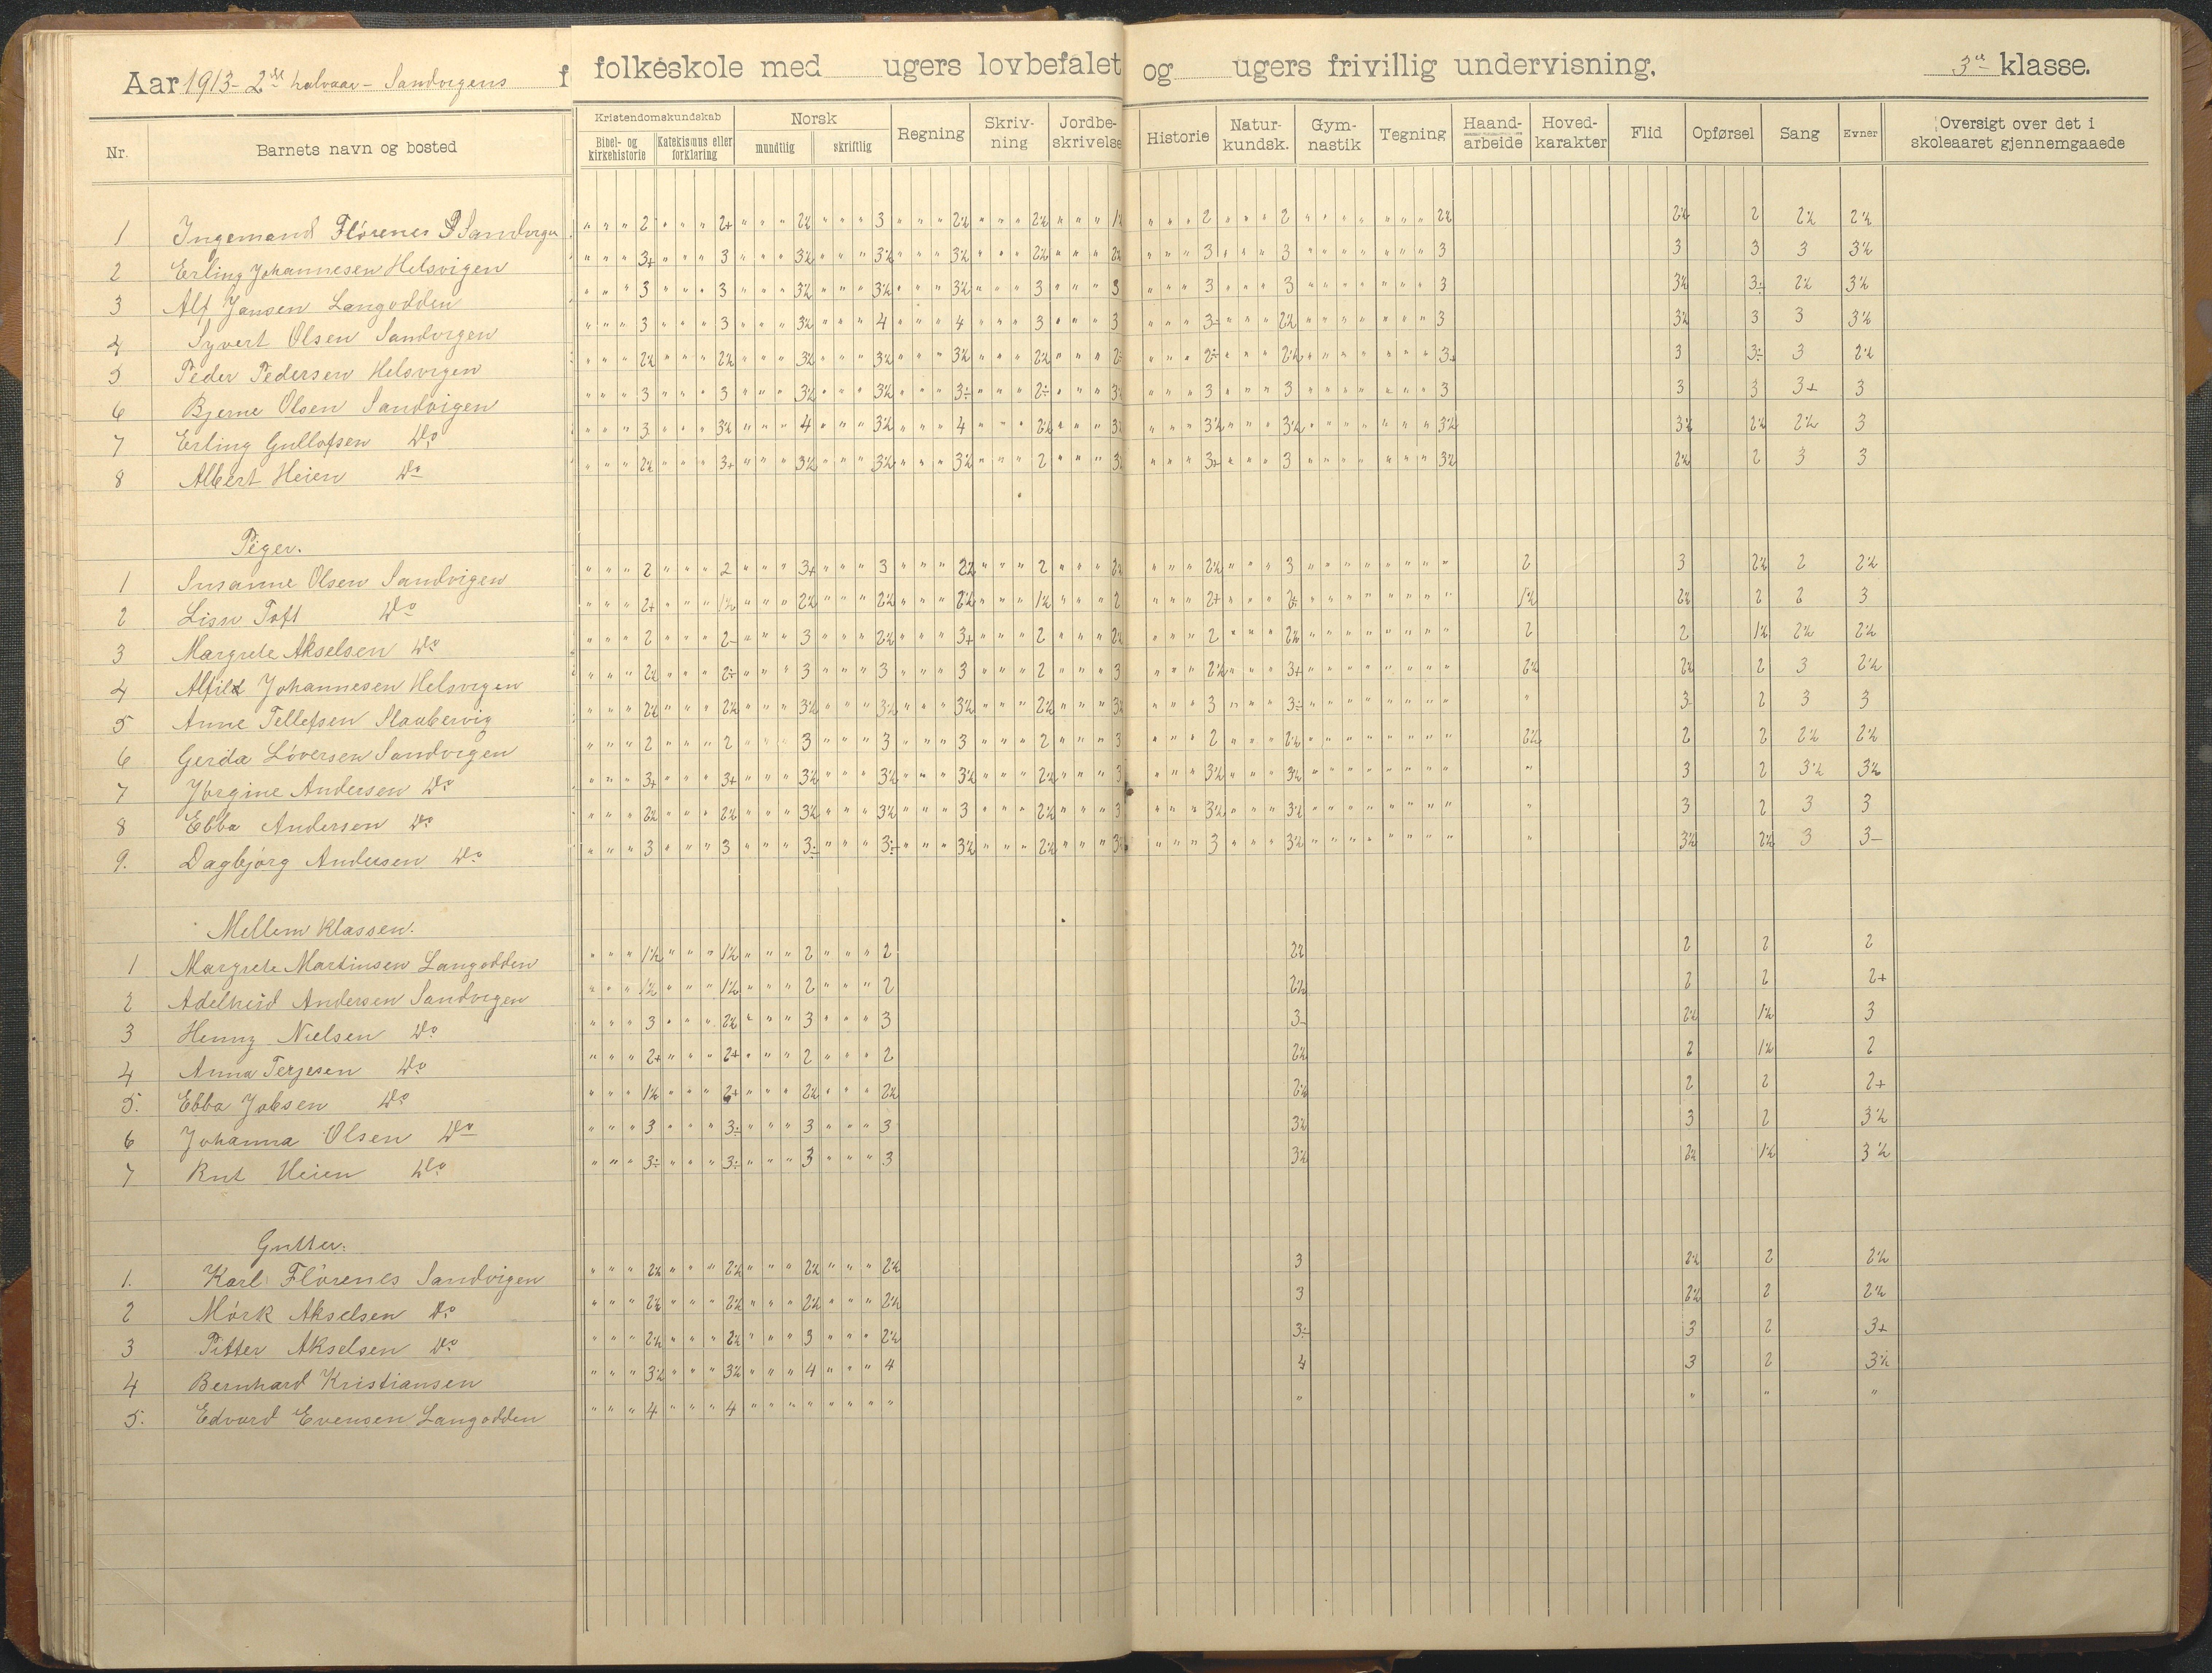 Aar 1913 - 2det halvaar - Sandvigens folkeskole med ugers lovbefalet og ugers frivillig undervisning. 3die klasse.
Nr. Barnets navn og bosted Kristendomskundskab Bibel- og kirkehistorie Katekismus eller forklaring Norsk mundtlig skriftlig Regning Skriv-ning Jordbe-skrivelse Historie Natur-kundsk. Gym-nastik Tegning Haand-arbeide Hoved-karakter Flid Opførsel Sang Evner Oversigt over det i skoleaaret gjennemgaaede
1 Ingemand Flørenes Sandvigen 2 2+ 2½ 3 2½ 2½ 1½ 2 2 2½ 2½ 2 2½ 2½
2 Erling Johannesen Helsvigen 3+ 3 3½ 3½ 3½ 2½ 2½ 3 3 3 3 3 3 3½
3 Alf Jansen Langodden 3 3 3½ 3½ 3½ 3 3 3 3 3 3½ 3÷ 2½ 3½
4 Syvert Olsen Sandvigen 3 3 3½ 4 4 3 3 3÷ 2½ 3 3½ 3 3 3½
5 Peder Pedersen Helsvigen 2½ 2½ 3½ 3½ 3½ 2½ 2÷ 2÷ 2½ 3+ 3 3÷ 3 2½
6 Bjerne Olsen Sandvigen 3 3 3½ 3½ 3÷ 2÷ 3½ 3 3 3 3 3 3+ 3
7 Erling Gullofsen Do 3 3½ 4 3½ 4 2½ 3½ 3½ 3½ 3½ 3½ 2½ 2½ 3
8 Albert Heien Do 2½ 3+ 3½ 3½ 3½ 2 3½ 3+ 3 3½ 2½ 2 3 3
Piger.
1 Susanne Olsen Sandvigen 2 2 3+ 3 2½ 2 2½ 2½ 3 2 3 2½ 2 2½
2 Lissn Toft Do 2+ 1½ 2½ 2½ 2½ 1½ 2 2+ 2÷ 1½ 2½ 2 2 3
3 Margrete Akselsen Do 2 2- 3 2½ 3+ 2 2½ 2 2½ 2 2 1½ 2½ 2½
4 Alfild Johannesen Helsvigen 2½ 2÷ 3 3 3 2 3 2½ 3+ 2½ 2½ 2 3 2½
5 Anne Tellefsen Staubervig 2½ 2½ 3½ 3½ 3½ 2½ 3½ 3 3÷ " 3 2 3 3
6 Gerda Løversen Sandvigen 2 2 3 3 3 2 3 2 2½ 2½ 2 2 2½ 2½
7 Jørgine Andersen Do 3+ 3+ 3½ 3½ 3½ 2½ 3 3½ 3½ " 3 2 3½ 3½
8 Ebba Andersen Do 2½ 2½ 3½ 3½ 3 2½ 3 3½ 3½ " 3 2 3 3
9. Dagbjørg Andersen Do 3 3 3÷ 3÷ 3½ 2½ 3½ 3 3½ " 3½ 2½ 3 3-
Mellem klassen.
1 Margrete Martinsen Langodden 1½ 1½ 2 2 2½ 2 2 2
2 Adelheid Andersen Sandvigen 1½ 1½ 2 2 2½ 2 2 2+
3 Henny Nielsen Do 3 2½ 3 3 3- 2½ 1½ 3
4 Anna Terjesen Do 2+ 2+ 2 2 2½ 2 1½ 2
5. Ebba Jabsen Do 1½ 2+ 2½ 2½ 2½ 2 2 2+
6 Johanna Olsen Do 3 3÷ 3 3 3½ 3 2 3½
7 Rut Heien Do 3÷ 3÷ 3 3 3½ 2½ 1½ 3½
Gutter.
1. Karl Flørenes Sandvigen 2½ 2½ 2½ 2½ 3 2½ 2 2½
2 Mørk Akselsen Do 2½ 2½ 2½ 2½ 3 2½ 2 2½
3 Pitter Akselsen Do 2½ 2½ 3 2½ 3÷ 3 2 3+
4 Bernhard Kristiansen 3½ 3½ 4 4 4 3 2 3½
5. Edvard Evensen Langodden 4 4 " " " " " "